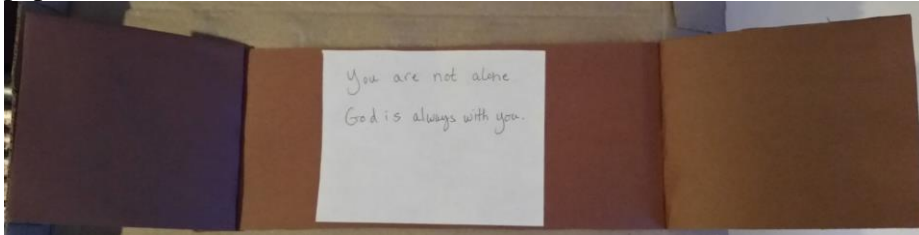 You are not alone
God is always with you.